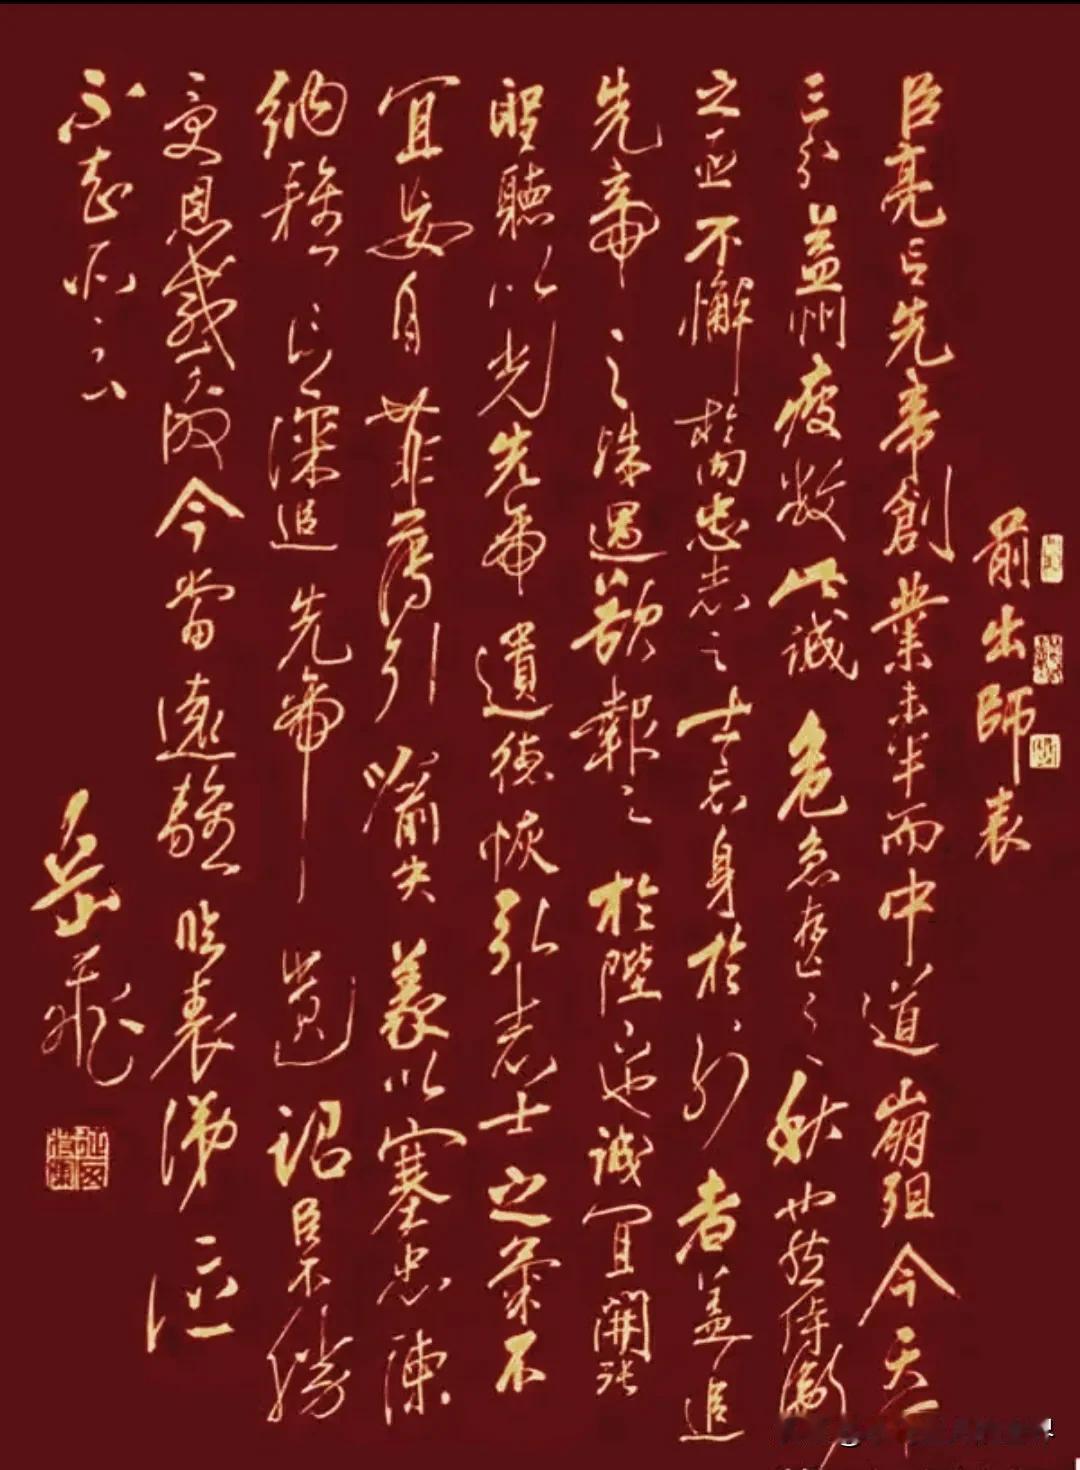 前出師表
臣亮言先帝創業未半而中道崩殂今天下
三分益州疲敝此誠危急存亡之秋也然侍衛
之臣不懈於内忠志之士忘身於外者蓋追
先帝之殊遇欲報之於陛下也誠宜開張
聖聽以光先帝遺德恢弘志士之氣不
宜妄自菲薄引喻失義以塞忠諫
納雅言深追先帝遺詔臣不勝
受恩感激今當遠離臨表涕泣
不知所云
岳飛